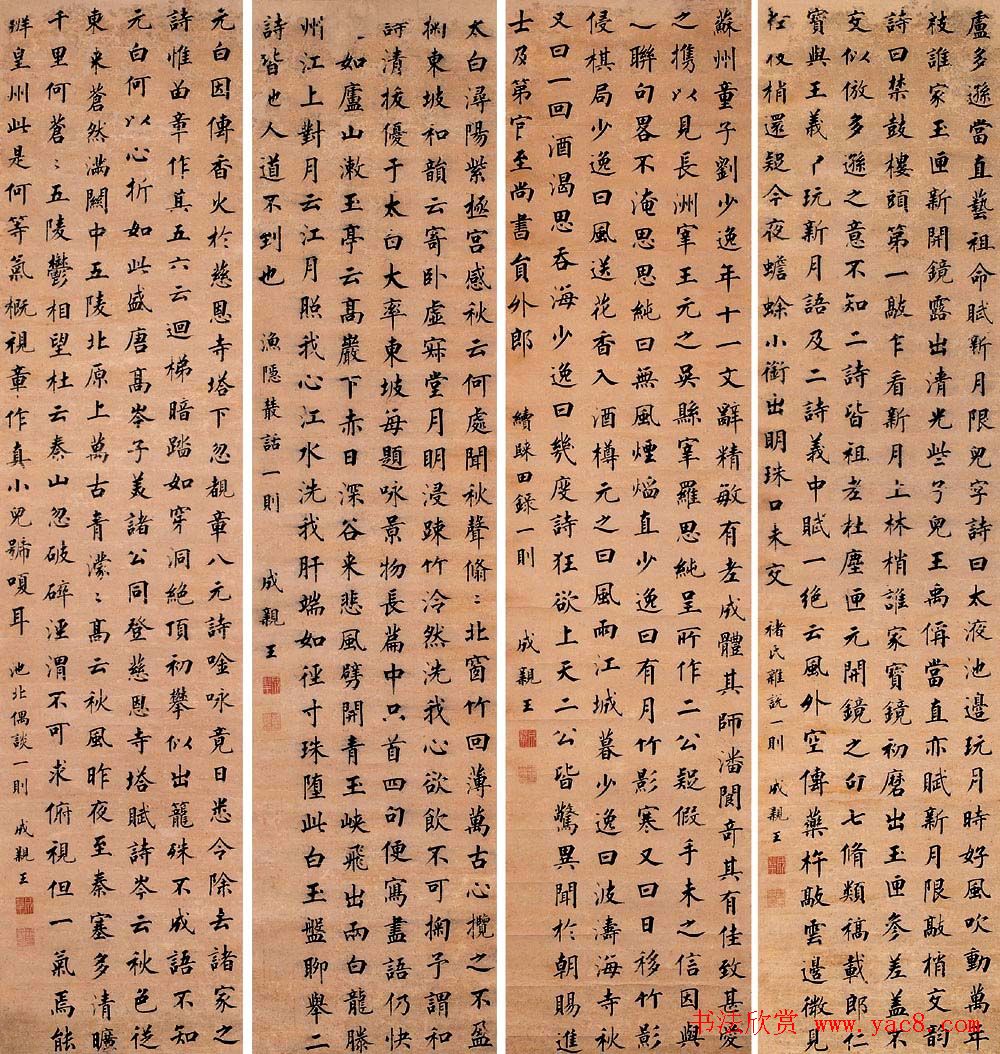 盧多遜當直藝祖命賦新月限兒字詩曰太液池邊玩月時好風吹動萬年
枝誰家玉匣新開鏡露出清光些子兒王禹偁當直亦賦新月限敲梢交韵
詩曰禁鼓樓頭第一敲乍看新月上林梢誰家寶鏡初磨出玉匣參差蓋不
交似倣多遜之意不知二詩皆祖老杜塵匣元開鏡之句七脩類稿載郎仁
寶與王義中玩新月語及二詩義中賦一絕云風外空傳藥杵敲雲邊微見
桂枝梢還疑今夜蟾蜍小銜出明珠口未交
褚氏雜說一則
成親王
蘇州童子劉少逸年十一文辭精敏有老成體其師潘閬奇其有佳致甚愛
之攜以見長洲宰王元之吳縣宰羅思純呈所作二公疑假手未之信因與
聯句畧不淹思思純曰無風煙焰直少逸曰有月竹影寒又曰日移竹影
侵棋局少逸曰風送花香入酒樽元之曰風雨江城暮少逸曰波濤海寺秋
又曰一回酒渴思吞海少逸曰幾度詩狂欲上天二公皆驚異聞於朝賜進
士及第官至尚書員外郎
續睽田錄一則
成親王
太白潯陽紫極宮感秋云何處聞秋聲翛〻北窗竹回薄萬古心攬之不盈
掬東坡和韻云寄臥虛寂堂月明浸疎竹泠然洗我心欲飲不可掬予謂和
詩清拔優于太白大率東坡每題咏景物長篇中只首四句便寫盡語仍快
如廬山漱玉亭云高巖下赤日深谷来悲風劈開青玉峽飛出兩白龍滕
州江上對月云江月照我心江水洗我肝端如徑寸珠墮此白玉盤聊舉二
詩皆也人道不到也
漁隱叢話一則
成親王
元白因傳香火於慈恩寺塔下忽覩章八元詩唫咏竟日悉令除去諸家之
詩惟留章作其五六云迴梯暗踏如穿洞絕頂初攀似出籠殊不成語不知
元白何以心折如此盛唐高岑子美諸公同登慈恩寺塔賦詩岑云秋色從
東来蒼然滿關中五陵北原上萬古青濛〻高云秋風昨夜至秦塞多清曠
千里何蒼〻五陵鬱相望杜云秦山忽破碎涇渭不可求俯視但一氣焉能
辨皇州此是何等氣概視章作真小兒號嗄耳
池北偶談一則
成親王
书法欣赏 www.yac8.com